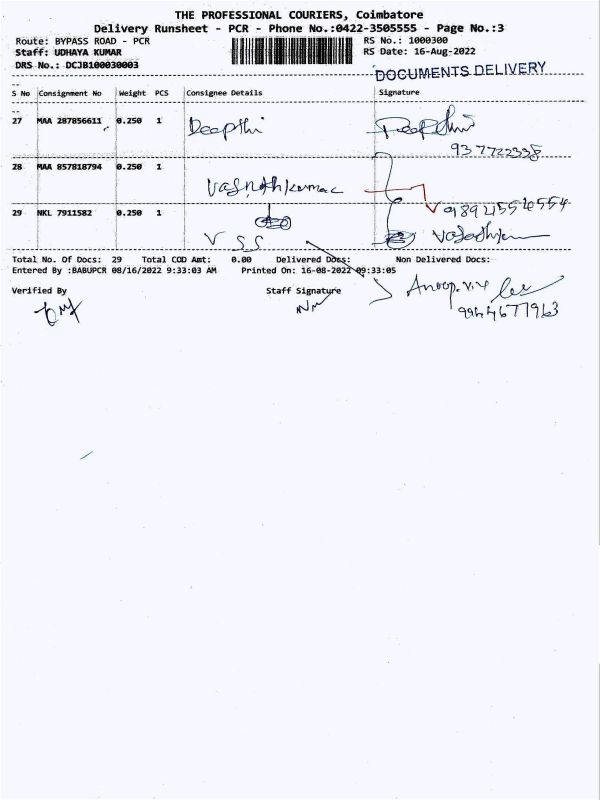 THE PROFESSIONAL COURIERS, Coimbatore
Delivery Runsheet - PCR - Phone No.:0422-3505555 - Page No.:3
Route: BYPASS ROAD - PCR RS No.: 1000300
Staff: UDHAYA KUMAR RS Date: 16-Aug-2022
DRS No.: DCJB100030003
DOCUMENTS DELIVERY
S No Consignment No Weight PCS Consignee Details Signature
27 MAA 287856611 0.250 1 Deepthi Deepthi
937722338
28 MAA 857818794 0.250 1
Vasnothkumar
29 NKL 7911582 0.250 1
V SS
Total No. Of Docs: 29 Total COD Amt: 0.00 Delivered Docs: Non Delivered Docs:
Entered By :BABUPCR 08/16/2022 9:33:03 AM Printed On: 16-08-2022 09:33:05
Verified By Staff Signature
Anoop.v.v
9944677963